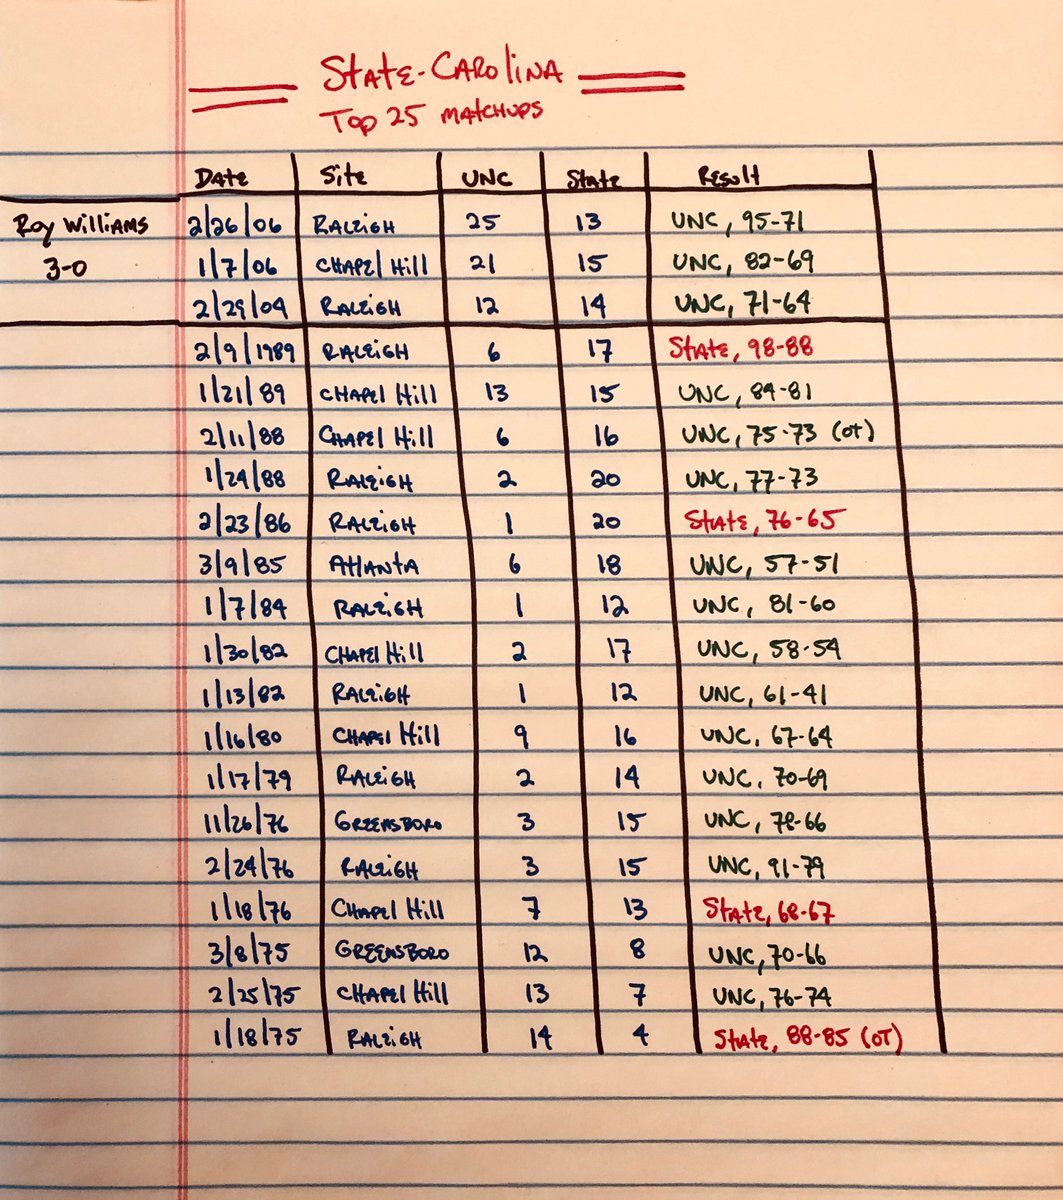 State-Carolina
Top 25 Matchups
Date Site UNC State Result
Roy Williams 2/26/06 Raleigh 25 13 UNC, 95-71
3-0 1/7/06 Chapel Hill 21 15 UNC, 82-69
2/29/04 Raleigh 12 14 UNC, 71-64
2/9/1989 Raleigh 6 17 State, 98-88
1/21/89 Chapel Hill 13 15 UNC, 84-81
2/11/88 Chapel Hill 6 16 UNC, 75-73 (OT)
1/24/88 Raleigh 2 20 UNC, 77-73
2/23/86 Raleigh 1 20 State, 76-65
3/9/85 Atlanta 6 18 UNC, 57-51
1/7/84 Raleigh 1 12 UNC, 81-60
1/30/82 Chapel Hill 2 17 UNC, 58-54
1/13/82 Raleigh 1 12 UNC, 61-41
1/16/80 Chapel Hill 9 16 UNC, 67-64
1/17/79 Raleigh 2 14 UNC, 70-69
11/26/76 Greensboro 3 15 UNC, 78-66
2/24/76 Raleigh 3 15 UNC, 91-79
1/18/76 Chapel Hill 7 13 State, 68-67
3/8/75 Greensboro 12 8 UNC, 70-66
2/25/75 Chapel Hill 13 7 UNC, 76-74
1/18/75 Raleigh 14 4 State, 88-85 (OT)